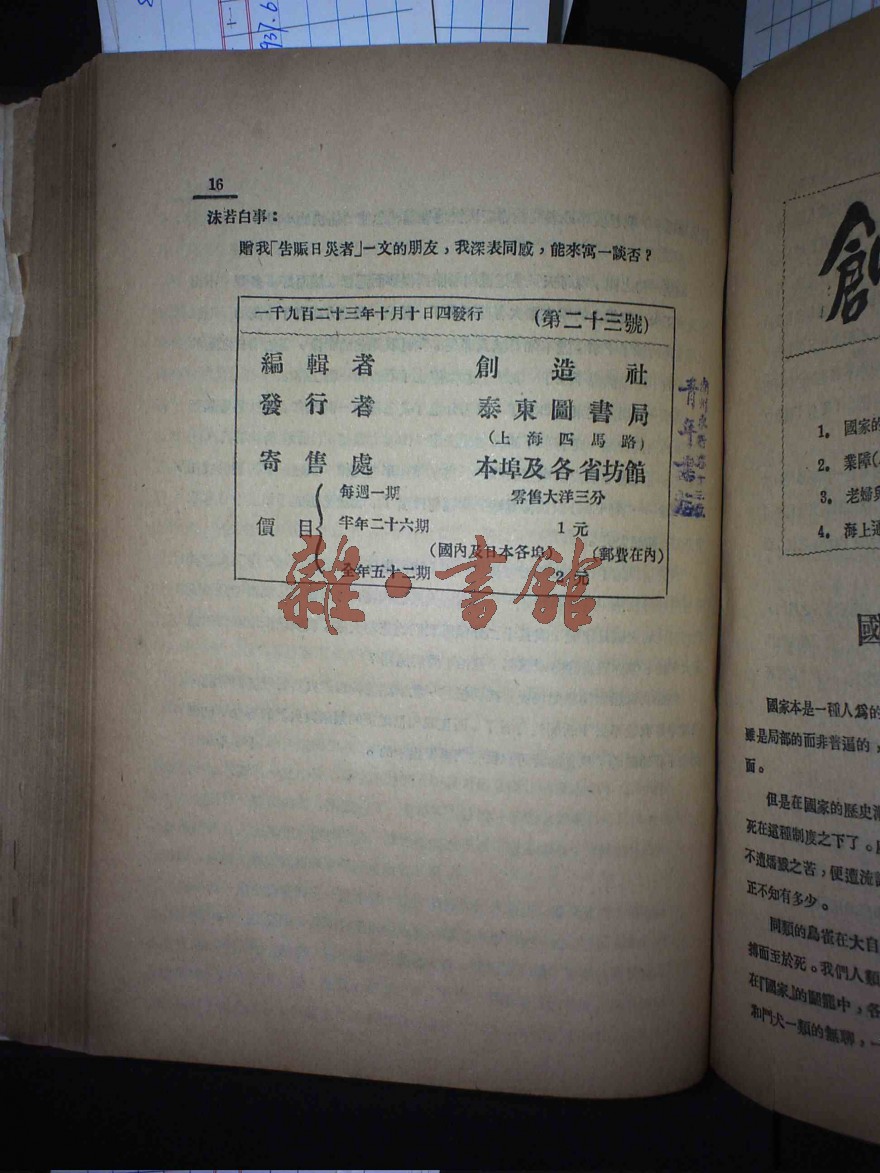 16
沫若白事：
贈我「告賑日災者」一文的朋友，我深表同感，能來寓一談否？
一千九百二十三年十月十日四發行 （第二十三號）
編輯者 創造社
發行者 泰東圖書局
（上海四馬路）
寄售處 本埠及各省坊館
價目
每週一期 零售大洋三分
半年二十六期 1元
（國內及日本各埠） （郵費在內）
全年五十二期 2元
青年書店
雜·書館
創
1. 國家的
2. 業障(
3. 老婦與
4. 海上通
國
國家本是一種人爲的
雖是局部的而非普遍的，
面。
但是在國家的歷史
死在這種制度之下了。
不遭之苦，便遭流
正不知有多少。
同類的鳥雀在大自
搏而至於死。我們人類
在「國家」的籠中，各
和鬥犬一類的無聊，一